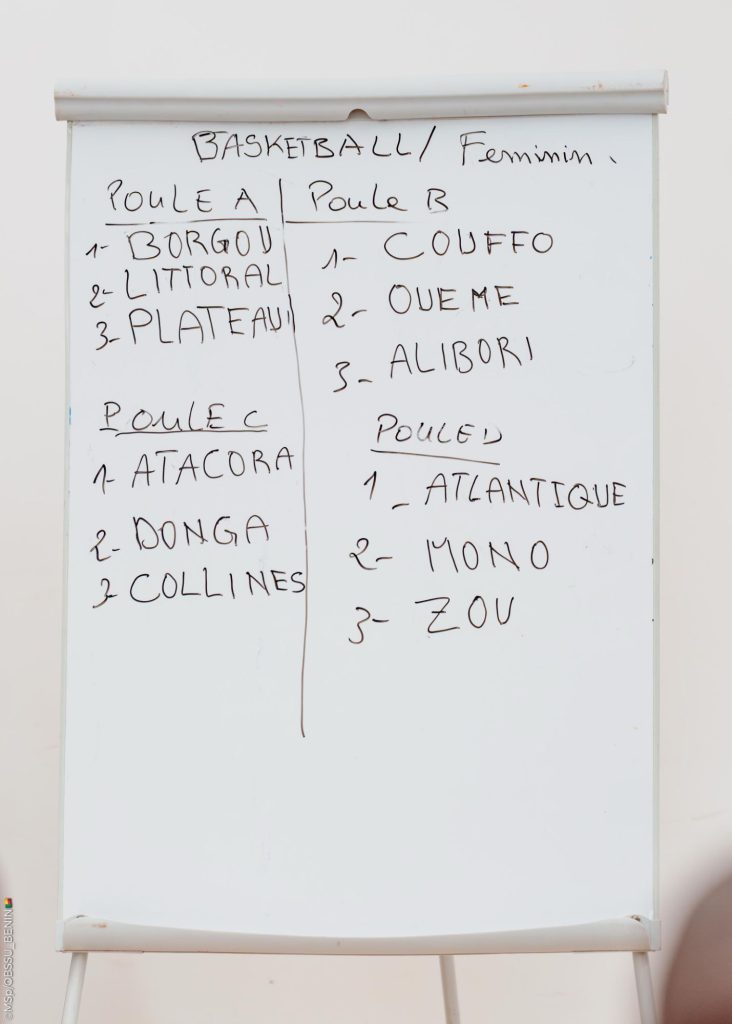 BASKETBALL / Feminin.
POULE A
1- BORGOU
2- LITTORAL
3- PLATEAU
Poule B
1- COUFFO
2- OUEME
3- ALIBORI
POULE C
1- ATACORA
2- DONGA
3- COLLINES
POULE D
1- ATLANTIQUE
2- MONO
3- ZOU
©MSp/OBSSU_BENIN